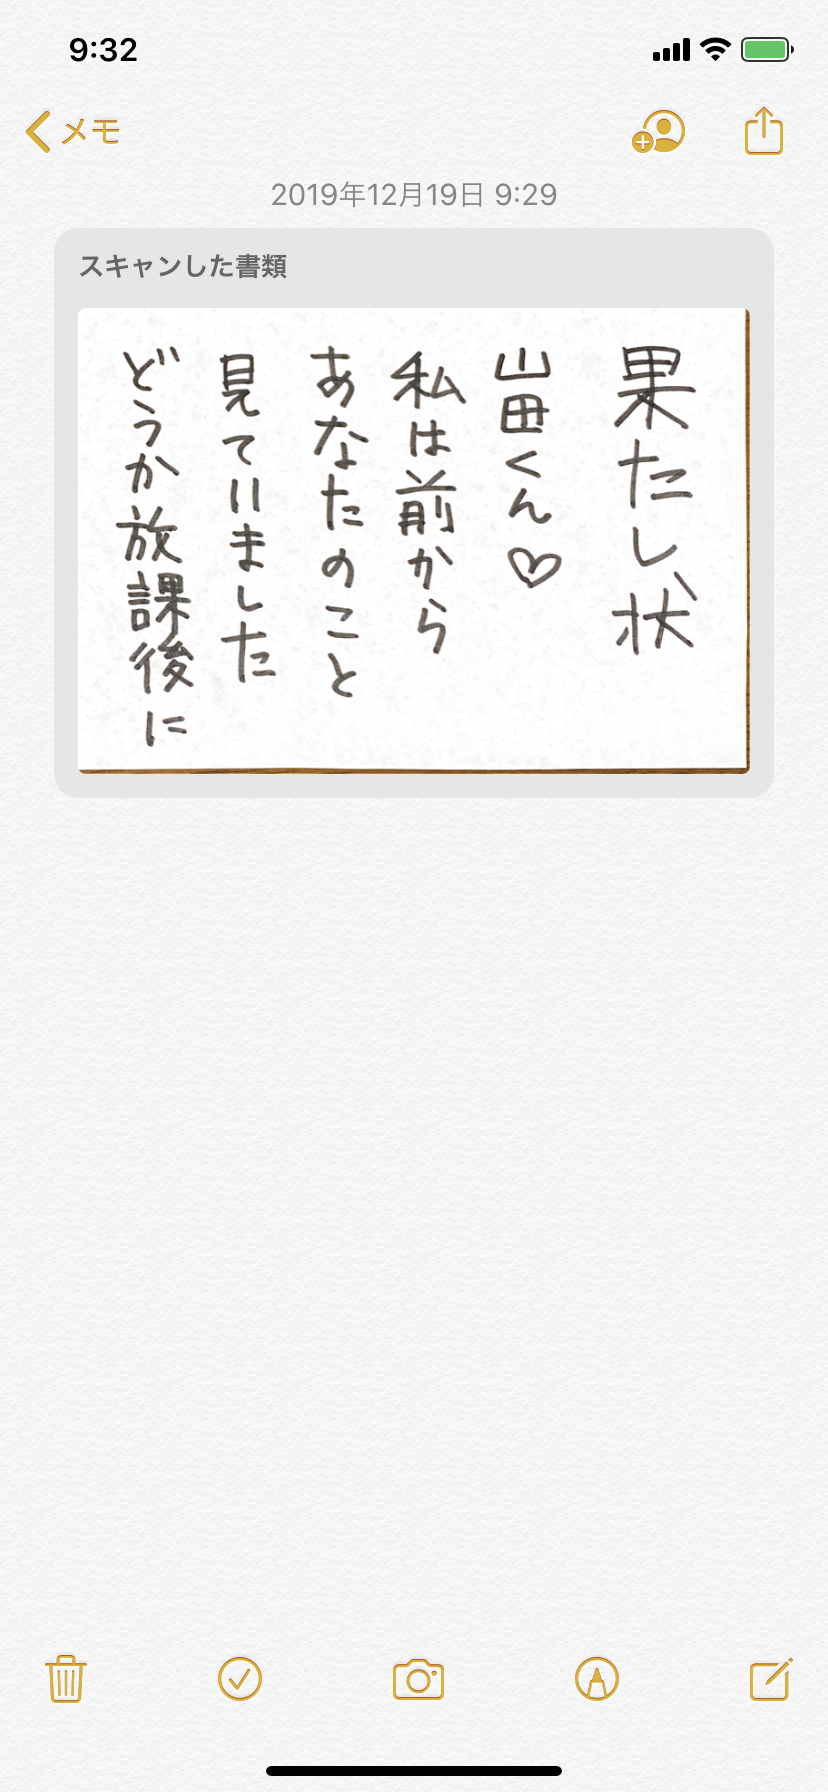 9:32
メモ
2019年12月19日 9:29
スキャンした書類
果たし状
山田くん♡
私は前から
あなたのこと
見ていました
どうか放課後に